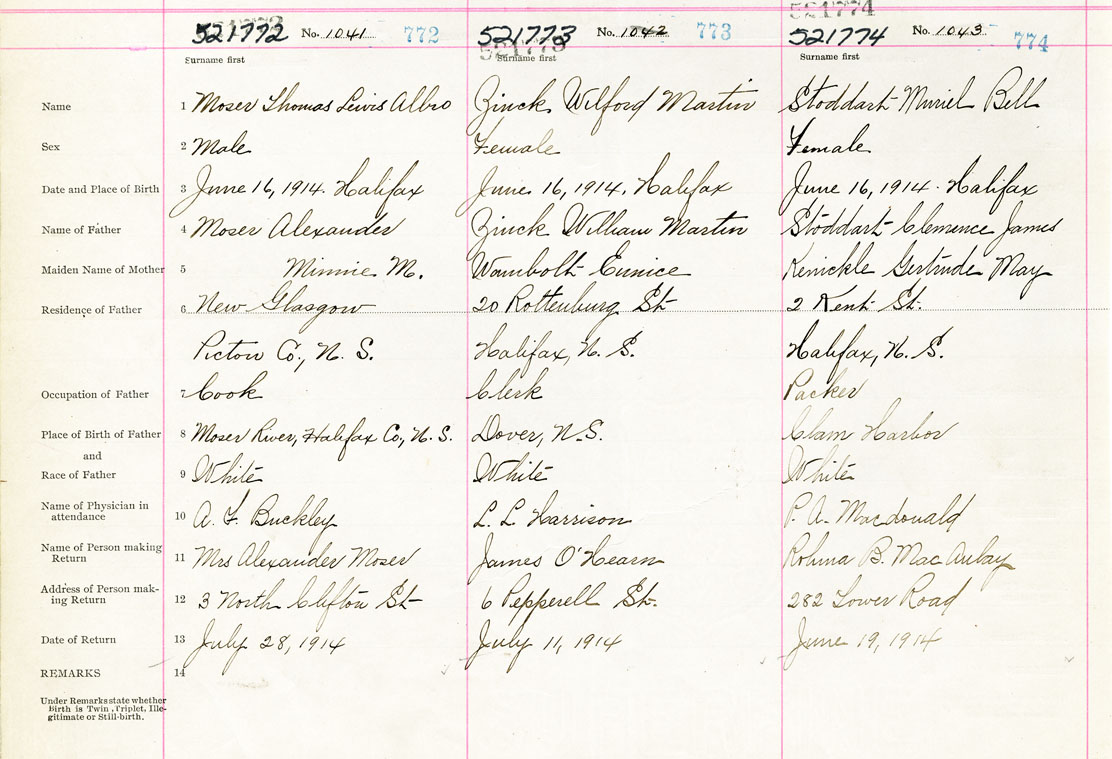 521774
521772 No. 1041 772 521773 No. 1042 773 521774 No. 1043 774
Surname first 521773 Surname first Surname first
Name 1 Moser Thomas Lewis Albro Zinck Wilford Martin Stoddart Muriel Bell
Sex 2 Male Female Female
Date and Place of Birth 3 June 16, 1914. Halifax June 16, 1914. Halifax June 16, 1914. Halifax
Name of Father 4 Moser Alexander Zinck William Martin Stoddart Clemence James
Maiden Name of Mother 5 Minnie M. Wambolt Eunice Kenickle Gertrude May
Residence of Father 6 New Glasgow 20 Rottenburg St 2 Kent St.
Pictou Co., N. S. Halifax, N. S. Halifax, N. S.
Occupation of Father 7 Cook Clerk Packer
Place of Birth of Father 8 Moser River, Halifax Co., N. S. Dover, N.S. Clam Harbor
and
Race of Father 9 White White White
Name of Physician in
attendance 10 A. F. Buckley L. L Harrison P. A. Macdonald
Name of Person making
Return 11 Mrs Alexander Moser James O'Hearn B.
Address of Person mak-
ing Return 12 3 North Clifton St 6 Pepperell St. 282 Lower Road
Date of Return 13 July 28, 1914 July 11, 1914 June 19, 1914
REMARKS 14
Under Remarks state whether
Birth is Twin, Triplet, Ille-
gitimate or Still-birth.